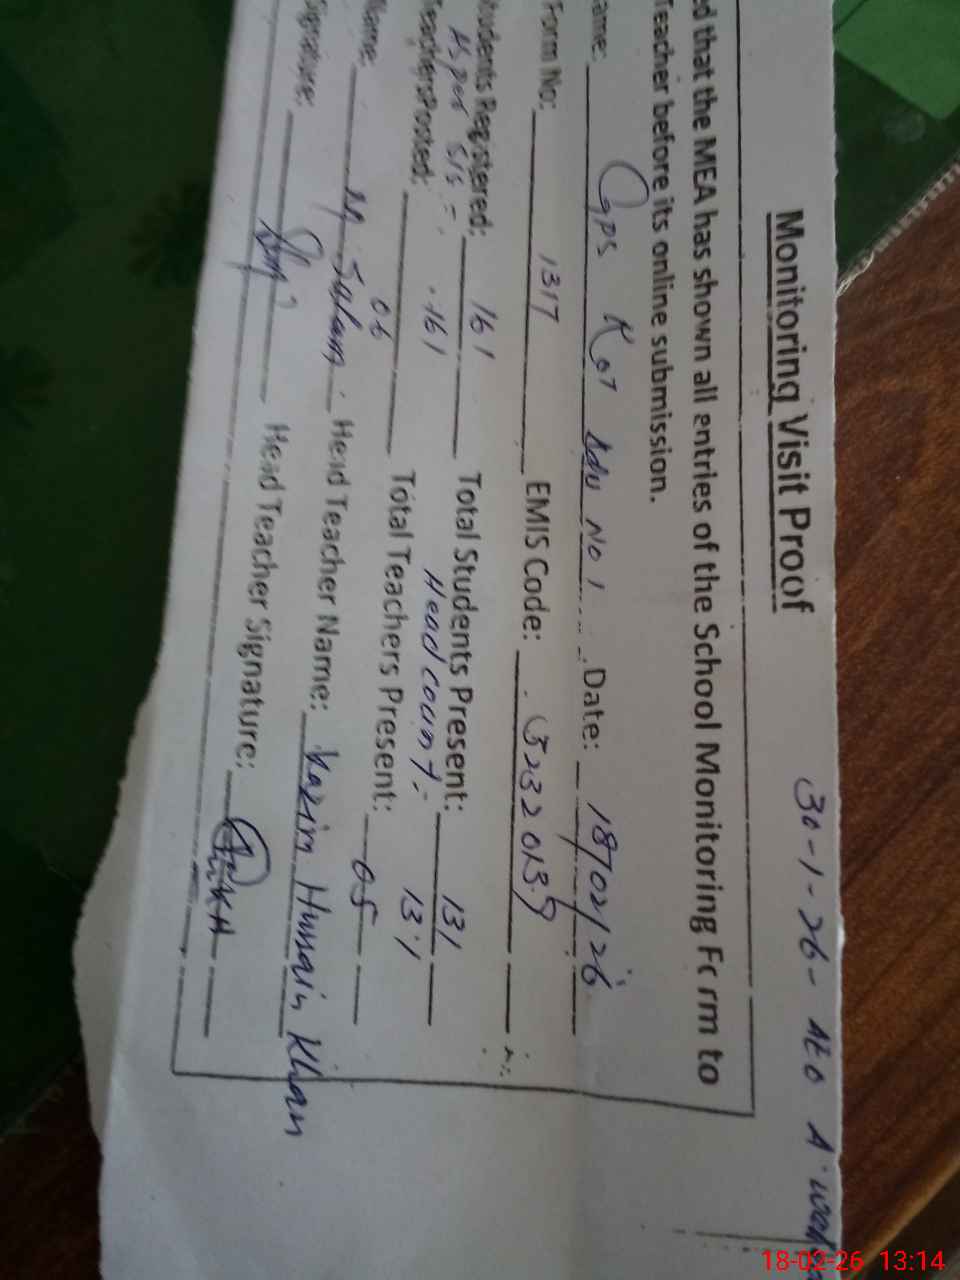 30-1-26- AEO A. wad
Monitoring Visit Proof
ed that the MEA has shown all entries of the School Monitoring Form to
Teacher before its online submission.
ame: GPS Kot Adu No 1 Date: 18/02/26
Form No: 1317 EMIS Code: 32320139
tudents Registered: 161 Total Students Present: 131
As per SIS =: 161 Head count:- 131
TeachersPosted: 06 Total Teachers Present: 05
Name: M. Salam Head Teacher Name: Kazim Hussain Khan
Signature: Head Teacher Signature:
18-02-26 13:14